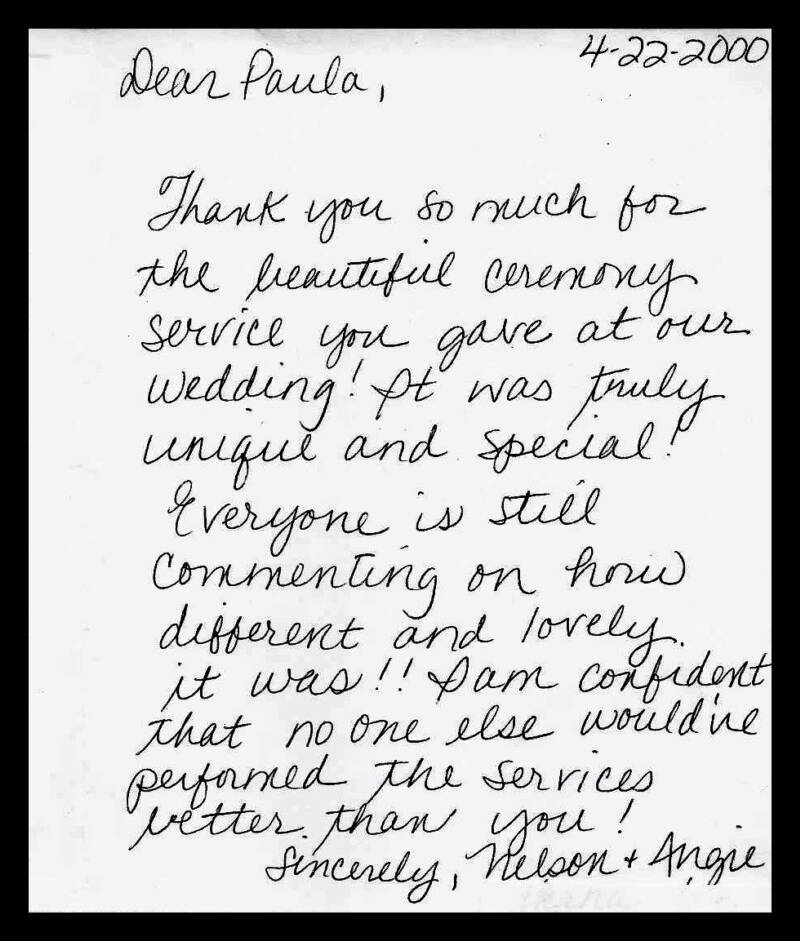 4-22-2000
Dear Paula,
Thank you so much for
the beautiful ceremony
service you gave at our
wedding! It was truly
unique and special!
Everyone is still
commenting on how
different and lovely
it was!! I am confident
that no one else would've
performed the services
better than you!
Sincerely, Nelson + Angie